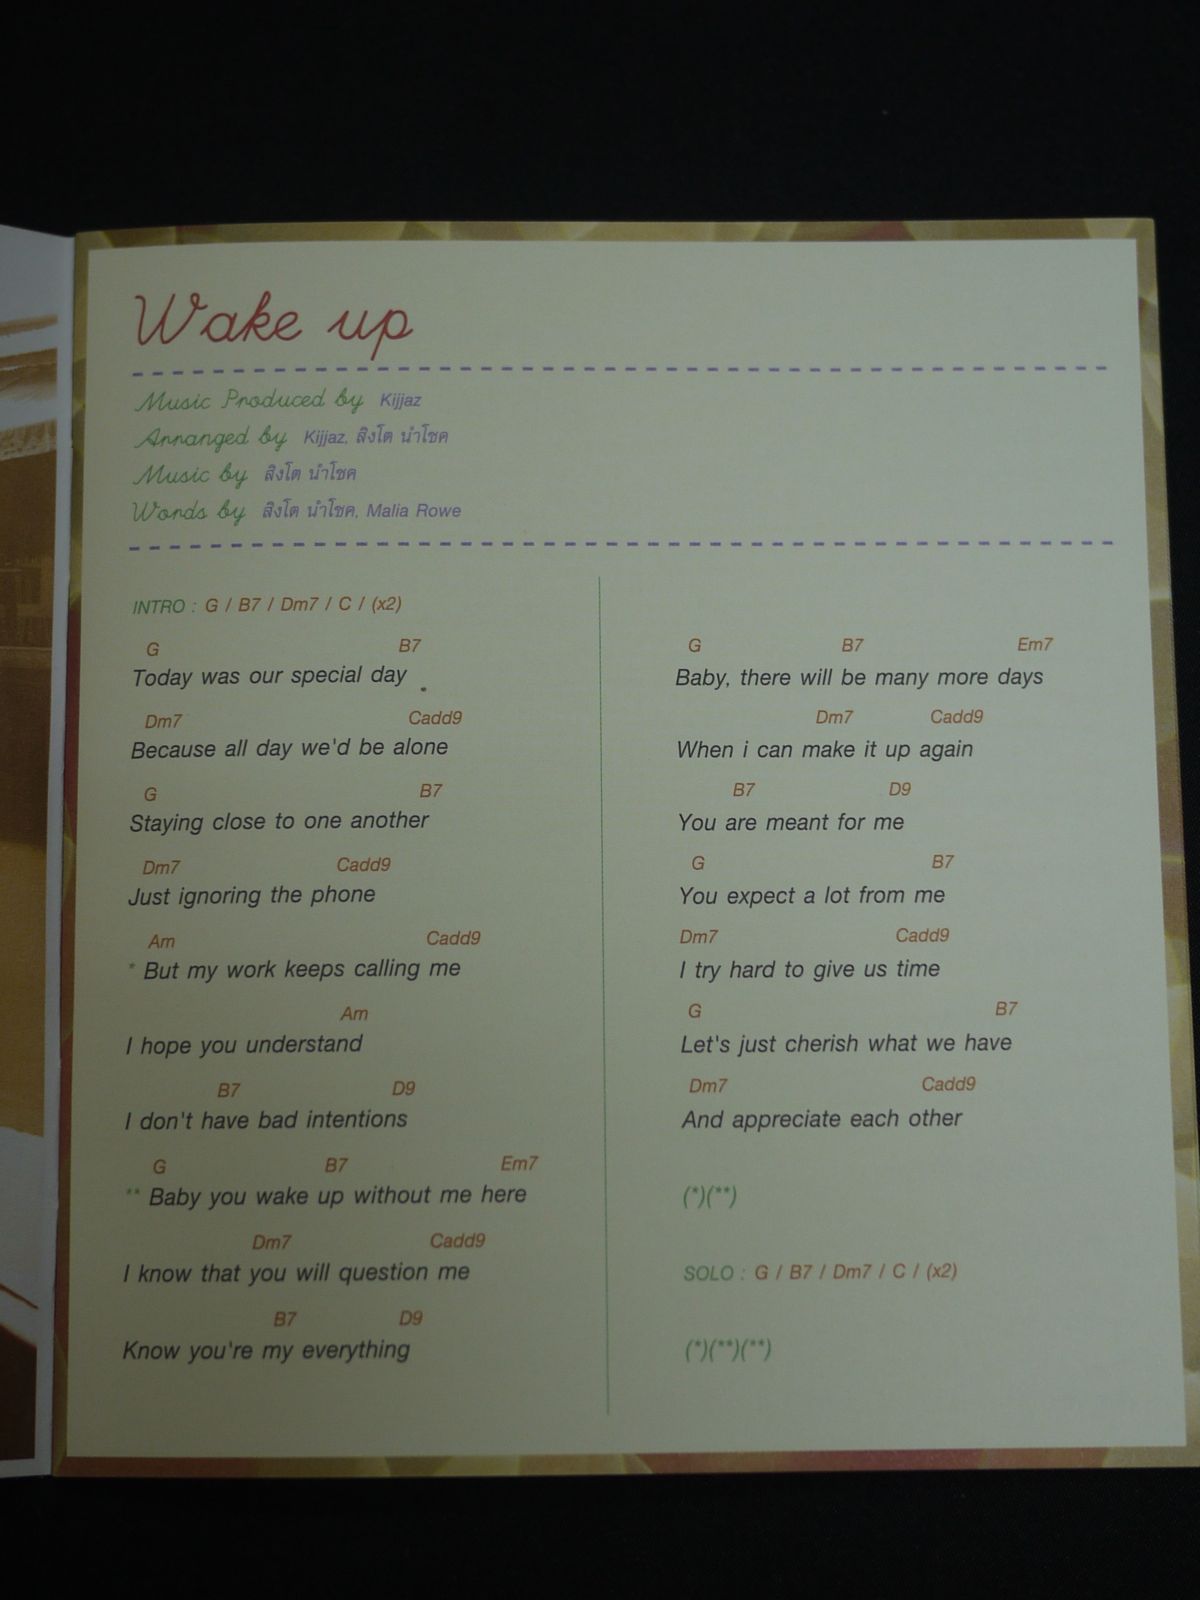 Wake up
Music Produced by Kijjaz
Arranged by Kijjaz, สิงโต นำโชค
Music by สิงโต นำโชค
Words by สิงโต นำโชค, Malia Rowe
INTRO : G / B7 / Dm7 / C / (x2)
G B7
Today was our special day
Dm7 Cadd9
Because all day we'd be alone
G B7
Staying close to one another
Dm7 Cadd9
Just ignoring the phone
Am Cadd9
* But my work keeps calling me
Am
I hope you understand
B7 D9
I don't have bad intentions
G B7 Em7
** Baby you wake up without me here
Dm7 Cadd9
I know that you will question me
B7 D9
Know you're my everything
G B7 Em7
Baby, there will be many more days
Dm7 Cadd9
When i can make it up again
B7 D9
You are meant for me
G B7
You expect a lot from me
Dm7 Cadd9
I try hard to give us time
G B7
Let's just cherish what we have
Dm7 Cadd9
And appreciate each other
(*)(**)
SOLO : G / B7 / Dm7 / C / (x2)
(*)(**)(**)